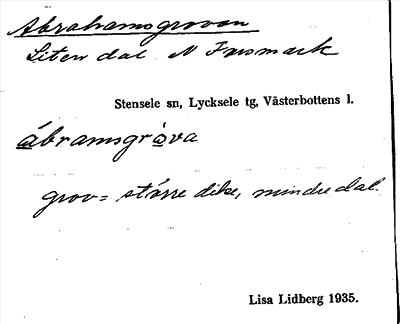 Abrahamsgrovan
Liten dal N Fansmark
Stensele sn, Lycksele tg, Västerbottens l.
ábramsgròva
grov = större dike, mindre dal.
Lisa Lidberg 1935.